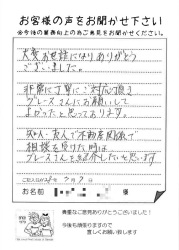 お客様の声をお聞かせ下さい
※今後の業務向上の為ご意見をお聞かせください。
大変お世話になりありがとう
ございました。
非常に丁寧にご対応頂き
グレースさんにお願いして
よかったと思っております。
知人・友人で不動産関係で
相談を受けた時は
グレースさんを紹介したいと思います
お名前
様
貴重なご意見ありがとうございました!
今後も頑張りますので
宜しくお願い致します